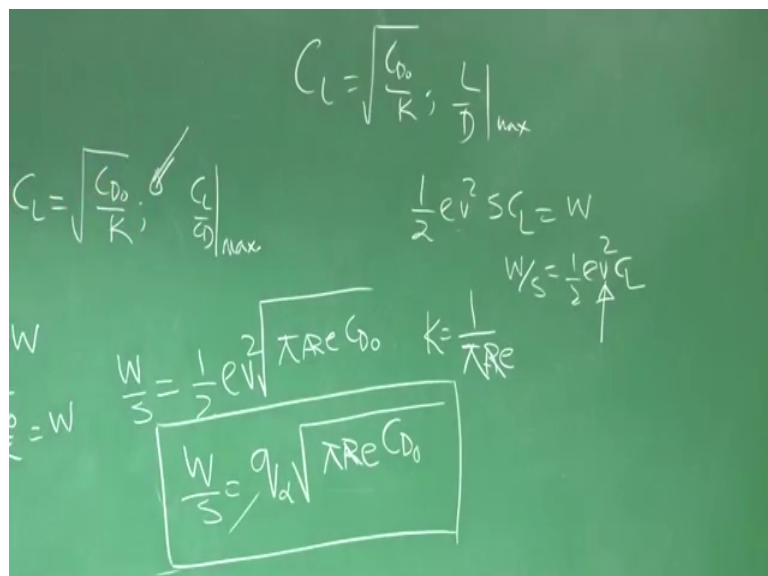 C_L = √(C_D₀/K) ; L/D|max
C_L = √(C_D₀/K) ; C_L/C_D|max
½ ρv² S C_L = W
W/S = ½ ρv² C_L
W
= W
W/S = ½ ρv² √(πARe C_D₀)
K = 1/(πARe)
W/S = q_α √(πARe C_D₀)